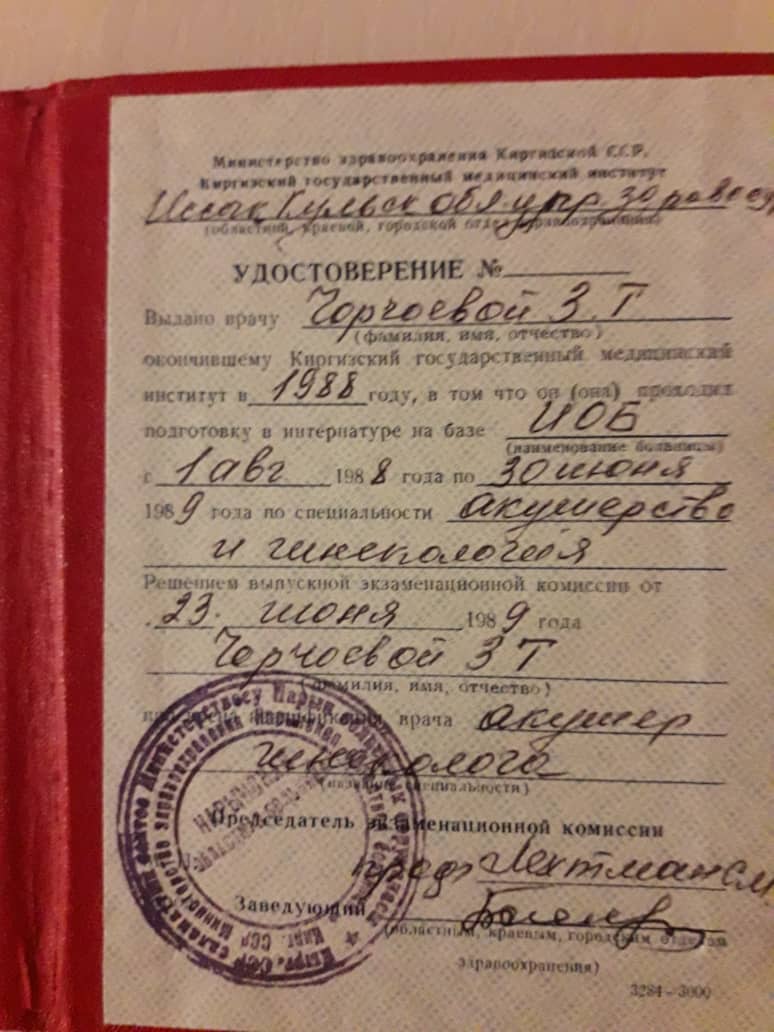 Министерство здравоохранения Киргизской ССР.
Киргизский государственный медицинский институт
Иссык Кульск обл упр. здравоохр
(областной, краевой, городской отдел здравоохранения)
УДОСТОВЕРЕНИЕ №
Выдано врачу Чорчоевой З. Т
(фамилия, имя, отчество)
окончившему Киргизский государственный медицинский
институт в 1988 году, в том что он (она) проходил
подготовку в интернатуре на базе ИОБ
(наименование больницы)
с 1 авг 1988 года по 30 июня
1989 года по специальности акушерство
и гинекология
Решением выпускной экзаменационной комиссии от
23. июня 1989 года
Чорчоевой З Т
(фамилия, имя, отчество)
квалификация врача акушер
гинеколога
(название специальности)
Председатель экзаменационной комиссии
проф Лехтман
Заведующий
(областным, краевым, городским отделом
здравоохранения)
3284—3000
Министерство здравоохранения
Кирг. ССР